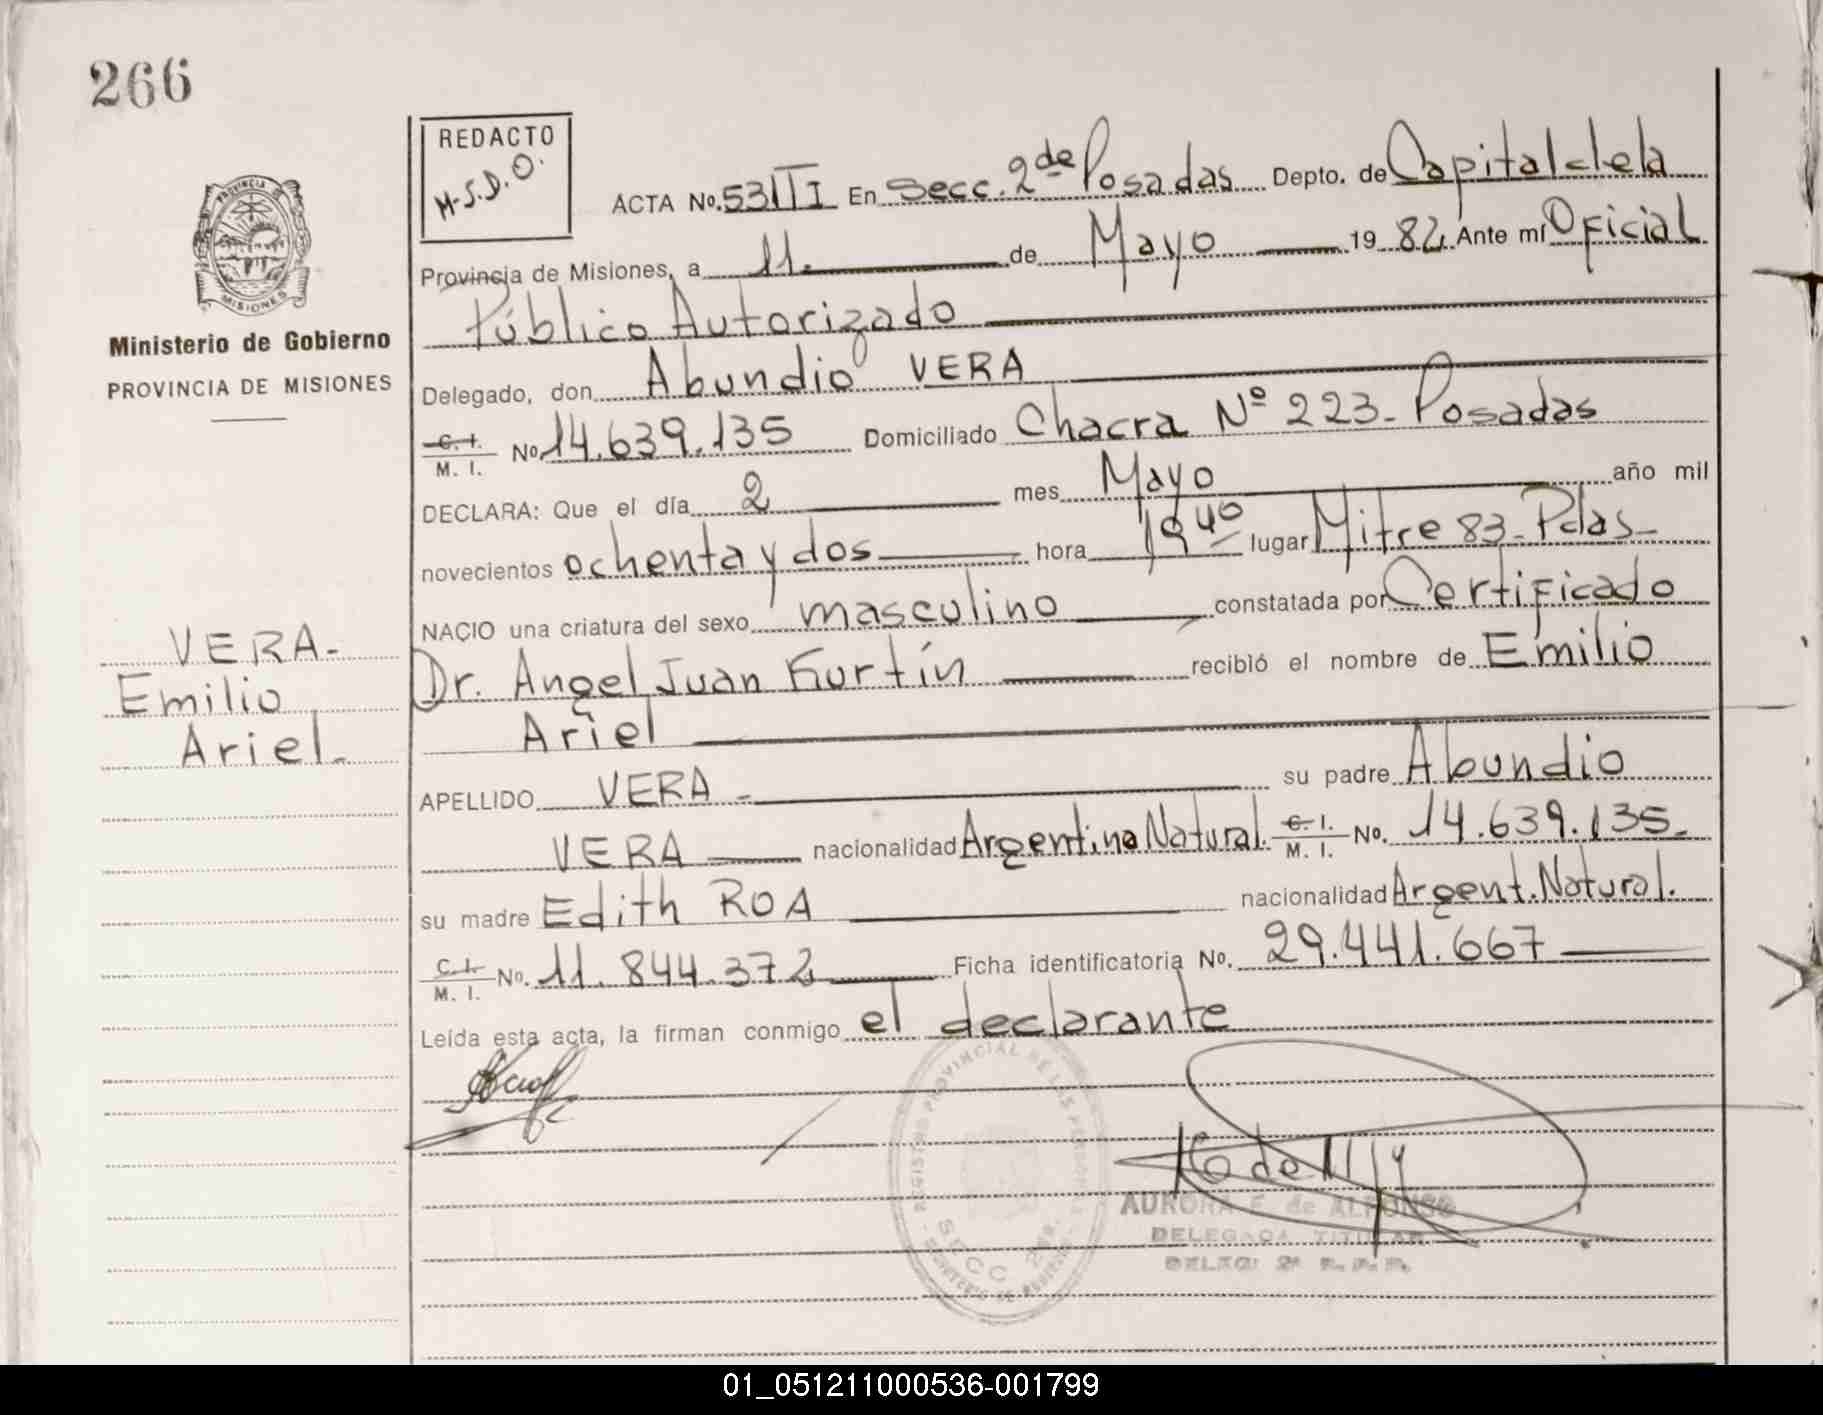 266
REDACTO
M-S.D.O.
ACTA No. 531 III En Secc. 2ª de Posadas Depto. de Capital de la
Provincia de Misiones, a 11. de Mayo 19 82. Ante mí Oficial
Público Autorizado
PROVINCIA DE MISIONES
Ministerio de Gobierno
PROVINCIA DE MISIONES
Delegado, don Abundio VERA
C. I.
M. I. No 14.639.135 Domiciliado Chacra Nº 223- Posadas
DECLARA: Que el día 2 mes Mayo año mil
novecientos ochenta y dos hora 19 40 lugar Mitre 83- Pdas-
NACIO una criatura del sexo masculino constatada por Certificado
Dr. Angel Juan Kurtín recibió el nombre de Emilio
Ariel
VERA-
Emilio
Ariel-
APELLIDO VERA - su padre Abundio
VERA nacionalidad Argentina Natural. C. I.
M. I. No. 14.639.135-
su madre Edith ROA nacionalidad Argent. Natural.
C. I.
M. I. No. 11.844.372 Ficha identificatoria No. 29.441.667
Leída esta acta, la firman conmigo el declarante
REGISTRO PROVINCIAL DE LAS PERSONAS
SECC 2da.
AURORA F. de ALFONSO
DELEGADA TITULAR
DELEG. 2ª R.P.P.
01_051211000536-001799